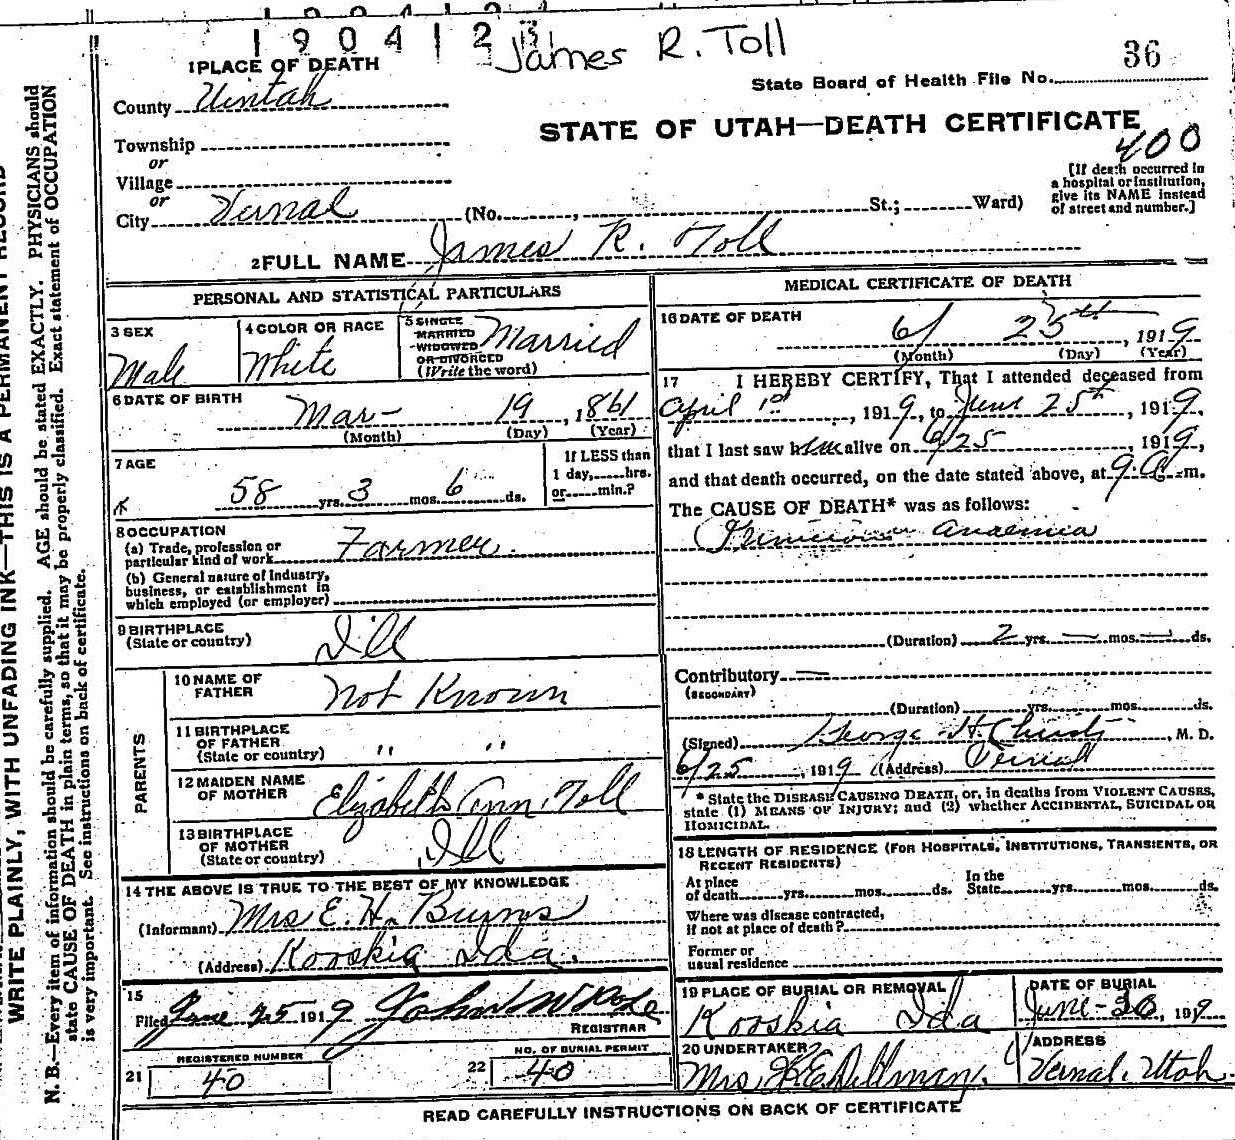 1904123
James R. Toll
36
1 PLACE OF DEATH
State Board of Health File No.
County Uintah
STATE OF UTAH—DEATH CERTIFICATE
400
Township
or
Village
or
City Vernal (No. , St.; Ward)
[If death occurred in
a hospital or institution,
give its NAME instead
of street and number.]
2 FULL NAME James R. Toll
PERSONAL AND STATISTICAL PARTICULARS
3 SEX
Male
4 COLOR OR RACE
White
5 SINGLE
MARRIED
WIDOWED
OR DIVORCED
(Write the word)
Married
6 DATE OF BIRTH
Mar- 19, 1861
(Month) (Day) (Year)
7 AGE
58 yrs. 3 mos. 6 ds.
If LESS than
1 day, hrs.
or min.?
8 OCCUPATION
(a) Trade, profession or
particular kind of work Farmer.
(b) General nature of industry,
business, or establishment in
which employed (or employer)
9 BIRTHPLACE
(State or country) Ill
PARENTS
10 NAME OF
FATHER Not Known
11 BIRTHPLACE
OF FATHER
(State or country) " "
12 MAIDEN NAME
OF MOTHER Elizabeth Ann Toll
13 BIRTHPLACE
OF MOTHER
(State or country) Ill
14 THE ABOVE IS TRUE TO THE BEST OF MY KNOWLEDGE
(Informant) Mrs E. H. Burns
(Address) Kooskia Ida.
15
Filed June 25 1919 John W
REGISTRAR
21 REGISTERED NUMBER
40
22 NO. OF BURIAL PERMIT
40
MEDICAL CERTIFICATE OF DEATH
16 DATE OF DEATH
6/ 25th, 1919
(Month) (Day) (Year)
17 I HEREBY CERTIFY, That I attended deceased from
April 1st, 1919, to June 25th, 1919,
that I last saw him alive on 6/25, 1919,
and that death occurred, on the date stated above, at 9 A. m.
The CAUSE OF DEATH* was as follows:
Pernicious anaemia
(Duration) 2 yrs. — mos. — ds.
Contributory —
(SECONDARY)
(Duration) yrs. mos. ds.
(Signed) George H. Christy, M. D.
6/25, 1919 (Address) Vernal
* State the DISEASE CAUSING DEATH, or, in deaths from VIOLENT CAUSES,
state (1) MEANS OF INJURY; and (2) whether ACCIDENTAL, SUICIDAL OR
HOMICIDAL.
18 LENGTH OF RESIDENCE (FOR HOSPITALS, INSTITUTIONS, TRANSIENTS, OR
RECENT RESIDENTS)
At place
of death yrs. mos. ds.
In the
State yrs. mos. ds.
Where was disease contracted,
if not at place of death?
Former or
usual residence
19 PLACE OF BURIAL OR REMOVAL
Kooskia Ida
DATE OF BURIAL
June-30, 1919
20 UNDERTAKER
Mrs K E Dillman.
ADDRESS
Vernal, Utah.
READ CAREFULLY INSTRUCTIONS ON BACK OF CERTIFICATE
WRITE PLAINLY, WITH UNFADING INK—THIS IS A PERMANENT RECORD
N. B.—Every item of information should be carefully supplied. AGE should be stated EXACTLY. PHYSICIANS should
state CAUSE OF DEATH in plain terms, so that it may be properly classified. Exact statement of OCCUPATION
is very important. See instructions on back of certificate.